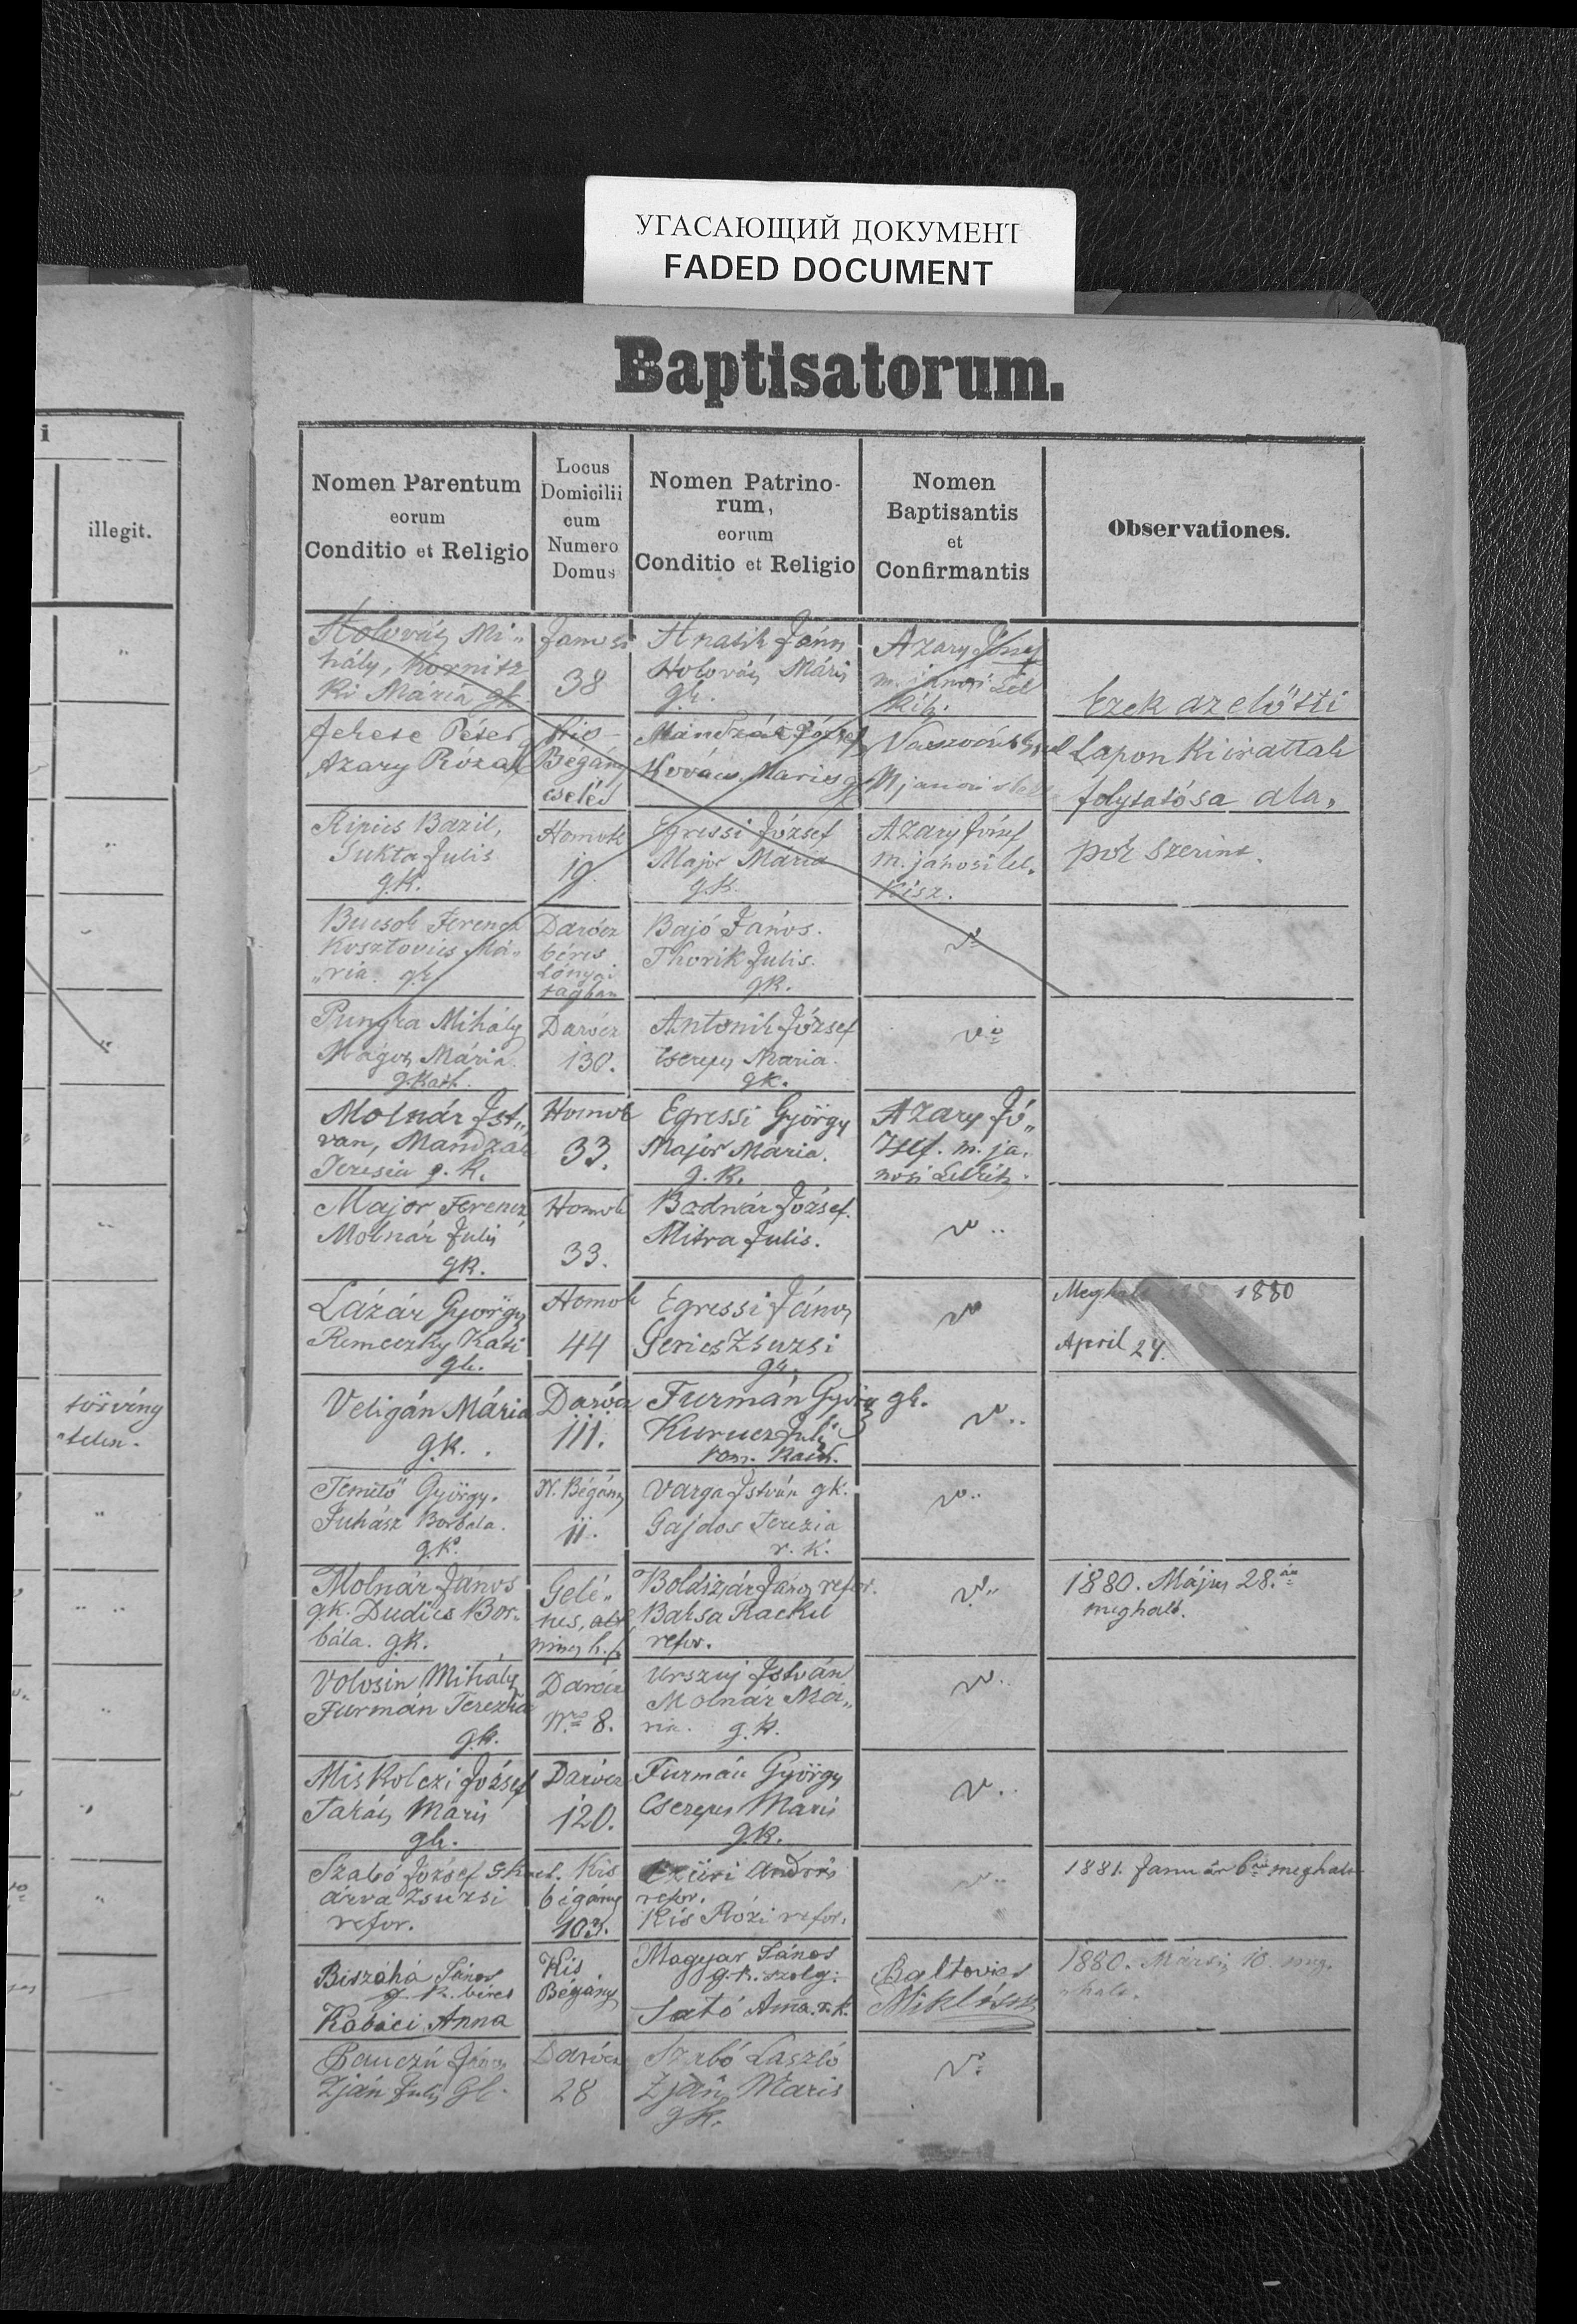 УГАСАЮЩИЙ ДОКУМЕНТ
FADED DOCUMENT
Baptisatorum.
i
illegit.
törvény
telen.
Nomen Parentum
eorum
Conditio et Religio
Locus
Domicilii
cum
Numero
Domus
Nomen Patrino-
rum,
eorum
Conditio et Religio
Nomen
Baptisantis
et
Confirmantis
Observationes.
Holovács Mi„
hály, Kornitz
ki Mária gk
Janosi
38
Hnatik János
Holovács Máris
gk.
Azary József
m. janosi Lel
kész.
Ezek az elötti
Fekete Péter,
Azary Róza gk
Kis
Bégány
cseléd
Mandzák József
Kovács Maris gk
M janosi
Lapon kiirattak
folytatósa ala„
Ripics Bazil,
Sukta Julis
g.k.
Homok
19.
Egressi József
Major Mária
g.k.
Azary József
m. janosi lel.
kész.
pot szerint.
Bucsok Ferencz
Kosztovics Má„
„ria. gk.
Darócz
béres
Lónyai
tagban
Bajó János.
Thorik Julis.
gk.
Pungka Mihály
Mágos Mária.
g.kath.
Darócz
130.
Antonik József
Cserepes Maria.
gk.
Molnár Ist„
van, Mandzák
Teresia g.k.
Homok
33.
Egressi György
Major Maria.
g.k.
Azary Jó„
zsef. m. ja„
nosi Lelkész.
Major Ferencz
Molnár Julis
gk.
Homok
33.
Bodnár József.
Mitra Julis.
Lázár György
Remeczky Kati
gk.
Homok
44
Egressi János
Gerics Zsuzsi
gk.
Meghalt 1880
April 24.
Veligán Mária
gk.
Darócz
111.
Furmán György gk.
Kurucz Julis
rom. kath.
Temető György.
Juhász Borbála.
g.k.
N. Bégány
11.
Varga István gk.
Gajdos Terezia
r. k.
Molnár János
gk. Dudics Bor„
bála. gk.
Gelé„
nes,
nincs h.
Boldizsár János refor.
Baksa Rachel
refor.
1880. Május 28.án
meghalt.
Volosin Mihály
Furmán Terezia
gk.
Darócz
Nro 8.
Urszuj István
Molnár Má„
ria. g.k.
Miskolczi József
Takács Maris
gk.
Darócz
120.
Furmán György
Cserepes Maris
gk.
Szabó József g.kath.
árva Zsuzsi
refor.
Kis
bégány
103.
András
refor.
Kis Rózi refor.
1881. Január 6án meghalt
Biszáhá János
g. k. béres
Kabáci Anna
Kis
Bégány
Magyar János
g.k. szolg:
Sató Anna. r.k.
Baltovics
Miklós
1880. Márcz 10. meg„
halt.
Pauczú János
Zján Julis Gk.
Darócz
28
Szabó László
Zján Maris
gk.